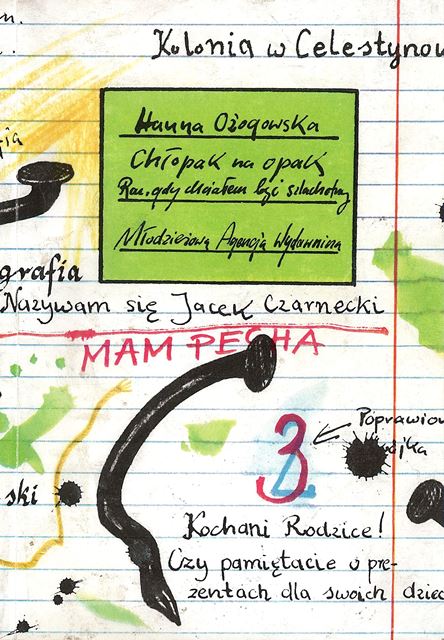 m.
Kolonia w Celestynow
Hanna Ożogowska
Chłopak na opak
Raz, gdy chciałem być szlachetny
Młodzieżowa Agencja Wydawnicza
grafia
Nazywam się Jacek Czarnecki
MAM PECHA
3
Poprawion
ójka
ski
Kochani Rodzice!
Czy pamiętacie o pre-
zentach dla swoich dziec